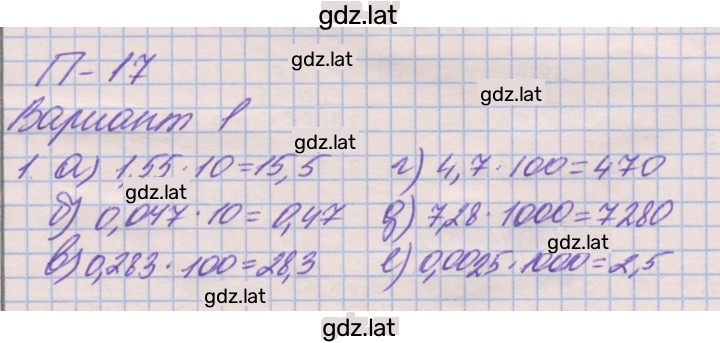 gdz.lat
П-17
gdz.lat
gdz.lat
Вариант 1
gdz.lat
1. а) 1,55 · 10 = 15,5
г) 4,7 · 100 = 470
gdz.lat
б) 0,047 · 10 = 0,47
д) 7,28 · 1000 = 7280
gdz.lat
в) 0,283 · 100 = 28,3
е) 0,0025 · 1000 = 2,5
gdz.lat
gdz.lat